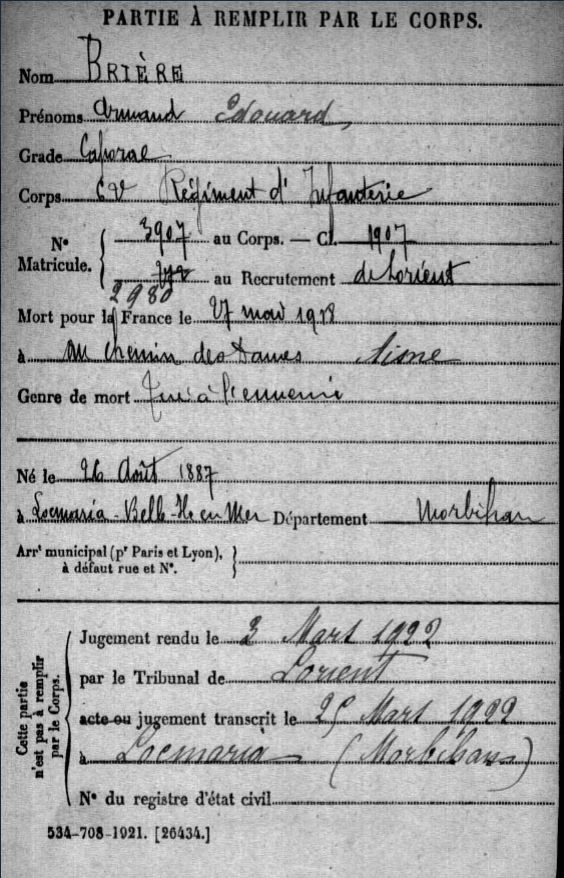 PARTIE À REMPLIR PAR LE CORPS.
Nom BRIÈRE
Prénoms Armand Edouard
Grade Caporal
Corps Régiment d'Infanterie
N° Matricule. { 3907 au Corps. — Cl. 1907
au Recrutement de Lorient
2980
Mort pour la France le 27 mai 1918
à au chemin des Dames Aisne
Genre de mort Tué à l'ennemi
Né le 26 Août 1887
à Locmaria-Belle-Ile en Mer Département Morbihan
Arrt municipal (pr Paris et Lyon), à défaut rue et N°. }
Cette partie n'est pas à remplir par le Corps.
Jugement rendu le 3 Mars 1922
par le Tribunal de Lorient
acte ou jugement transcrit le 25 Mars 1922
à Locmaria (Morbihan)
N° du registre d'état civil
534-708-1921. [26434.]